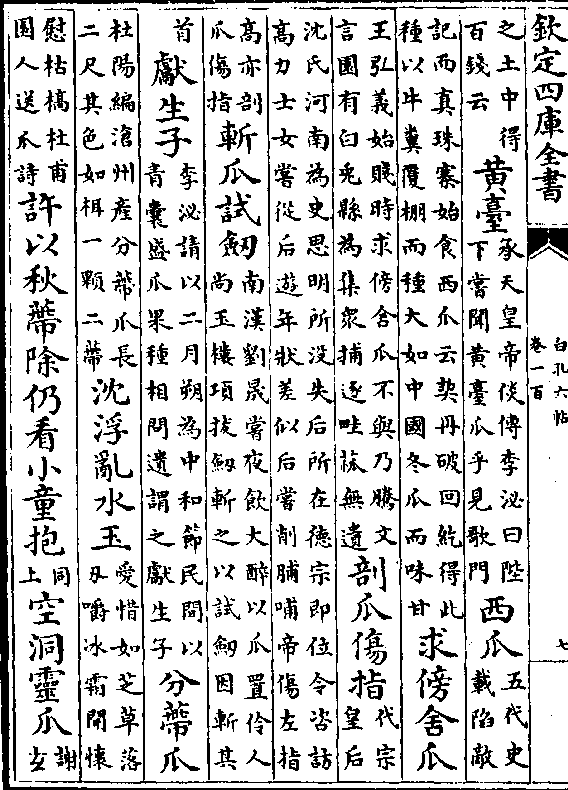 欽定四庫全書
白孔六帖
卷一百
七
之土中得百錢云黄臺承天皇帝倓傳李泌曰陛下嘗聞黄臺瓜乎見歌門西瓜五代史載陷敵
記而真珠寨始食西瓜云契丹破回紇得此種以牛糞覆棚而種大如中國冬瓜而味甘求傍舍瓜
王弘義始賤時求傍舍瓜不與乃騰文言園有白兎縣為集衆捕逐畦蓏無遺剖瓜傷指代宗皇后
沈氏河南為史思明所没失后所在德宗即位令咨訪髙力士女嘗從后遊年狀差似后嘗削脯哺帝傷左指
髙亦剖瓜傷指斬瓜試劒南漢劉晟嘗夜飲大醉以瓜置伶人尚玉樓項拔劒斬之以試劒因斬其
首獻生子李泌請以二月朔為中和節民間以青囊盛瓜果種相問遺謂之獻生子分蔕瓜
杜陽編滄州産分蔕瓜長二尺其色如椹一顆二蔕沈浮亂水玉愛惜如芝草落刄嚼冰霜開懷
慰枯槁杜甫園人送瓜詩許以秋蔕除仍看小童抱同上空洞靈瓜謝玄